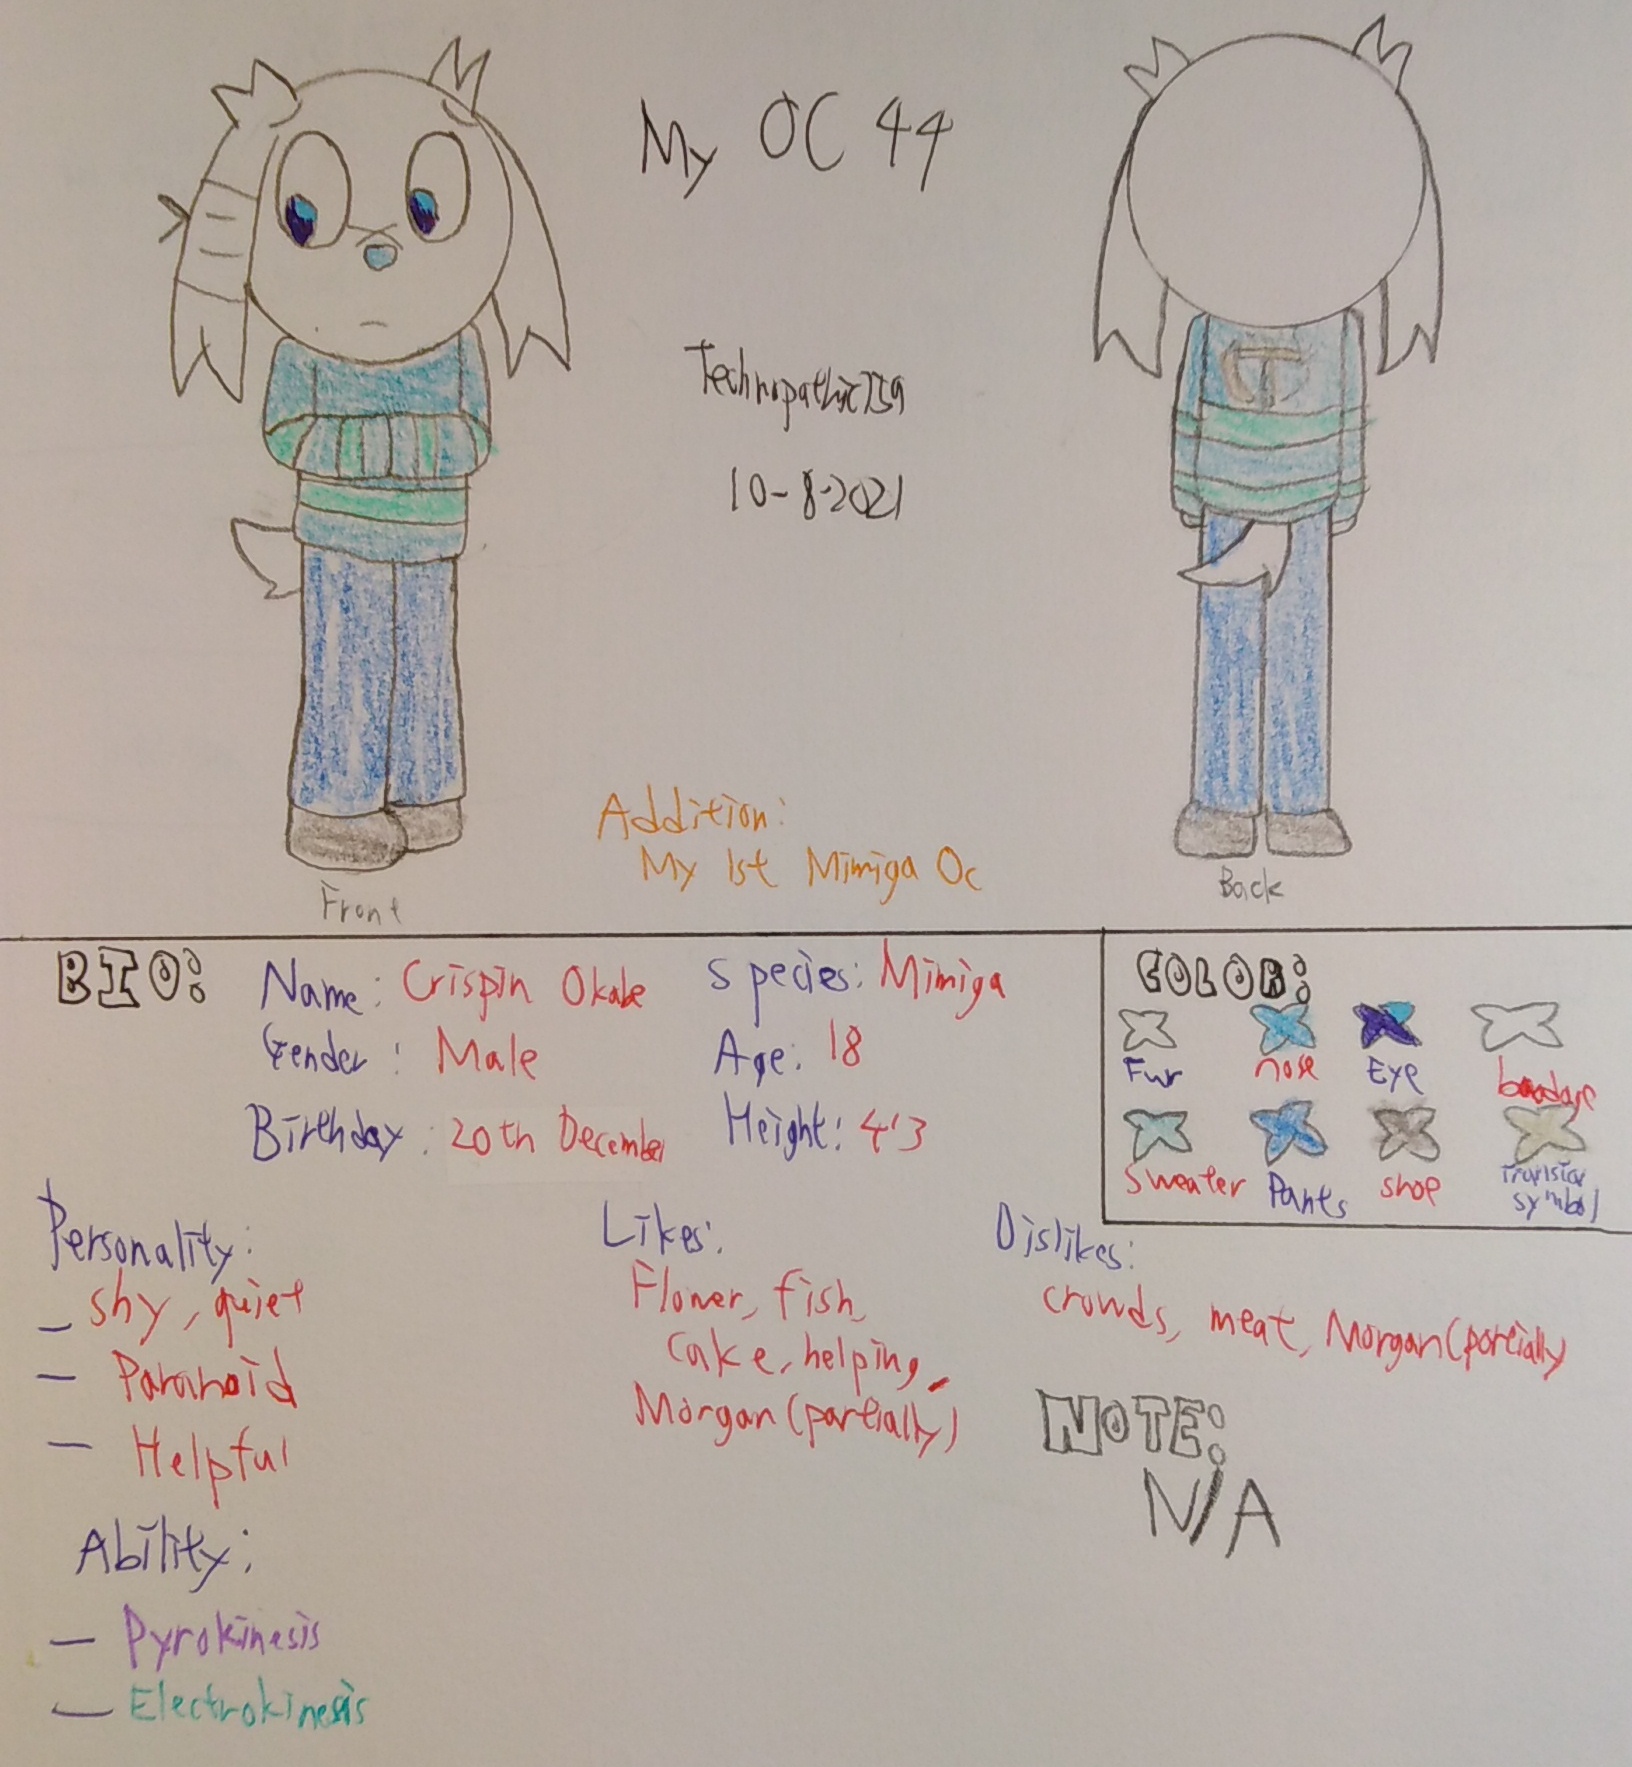 My OC 44
TechnopathicISA
10-8-2021
Addition:
My 1st Mimiga Oc
Front
Back
BIO:
Name: Crispin Okabe
Species: Mimiga
Gender: Male
Age: 18
Birthday: 20th December
Height: 4'3
COLOR:
Fur
nose
Eye
bandage
Sweater
Pants
shoe
symbol
Personality:
- shy, quiet
- Paranoid
- Helpful
Likes:
Flower, fish,
cake, helping,
Morgan (partially)
Dislikes:
crowds, meat, Morgan (partially
NOTE:
N/A
Ability:
- Pyrokinesis
- Electrokinesis